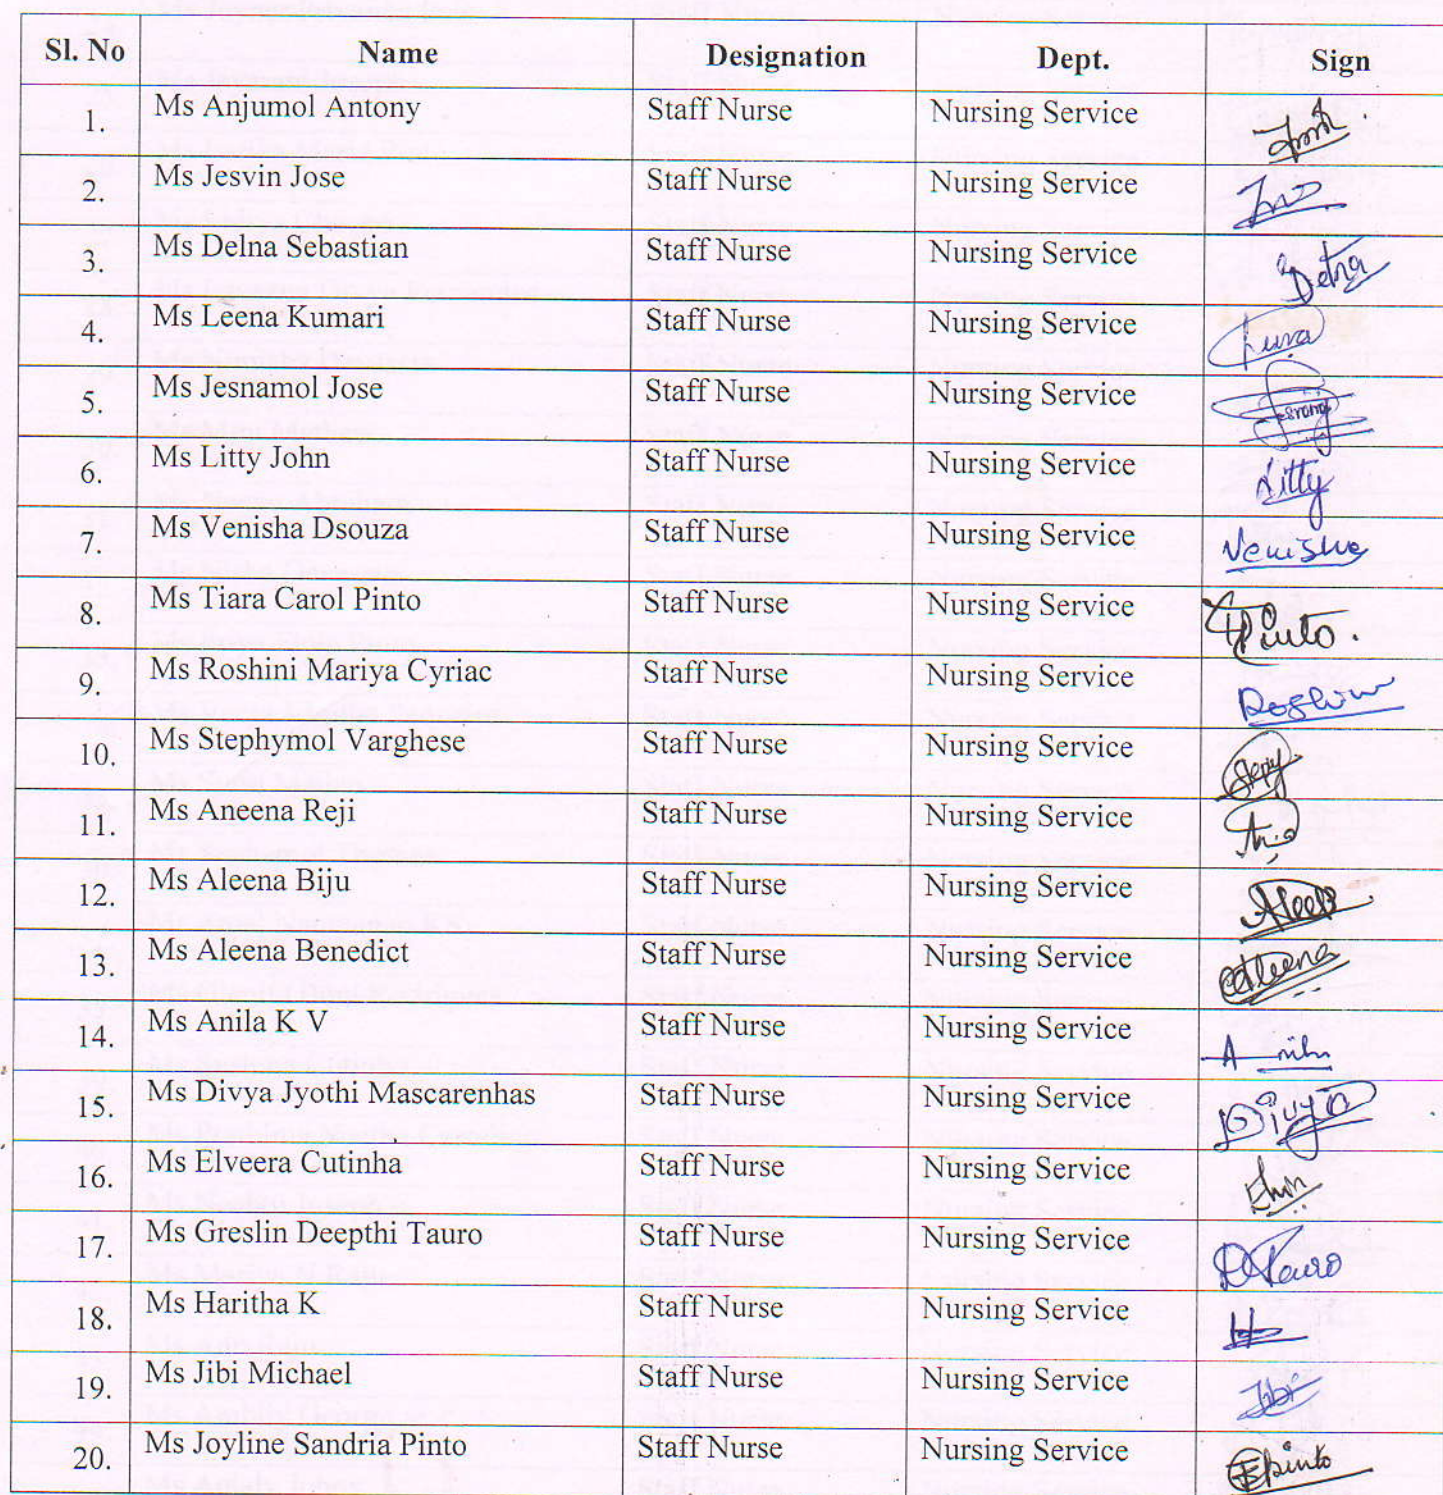 Sl. No Name Designation Dept. Sign
1. Ms Anjumol Antony Staff Nurse Nursing Service
2. Ms Jesvin Jose Staff Nurse Nursing Service
3. Ms Delna Sebastian Staff Nurse Nursing Service Delna
4. Ms Leena Kumari Staff Nurse Nursing Service
5. Ms Jesnamol Jose Staff Nurse Nursing Service
6. Ms Litty John Staff Nurse Nursing Service Litty
7. Ms Venisha Dsouza Staff Nurse Nursing Service Venisha
8. Ms Tiara Carol Pinto Staff Nurse Nursing Service TPinto.
9. Ms Roshini Mariya Cyriac Staff Nurse Nursing Service
10. Ms Stephymol Varghese Staff Nurse Nursing Service
11. Ms Aneena Reji Staff Nurse Nursing Service
12. Ms Aleena Biju Staff Nurse Nursing Service
13. Ms Aleena Benedict Staff Nurse Nursing Service Aleena
14. Ms Anila K V Staff Nurse Nursing Service
15. Ms Divya Jyothi Mascarenhas Staff Nurse Nursing Service Divya
16. Ms Elveera Cutinha Staff Nurse Nursing Service
17. Ms Greslin Deepthi Tauro Staff Nurse Nursing Service DTauro
18. Ms Haritha K Staff Nurse Nursing Service
19. Ms Jibi Michael Staff Nurse Nursing Service Jibi
20. Ms Joyline Sandria Pinto Staff Nurse Nursing Service